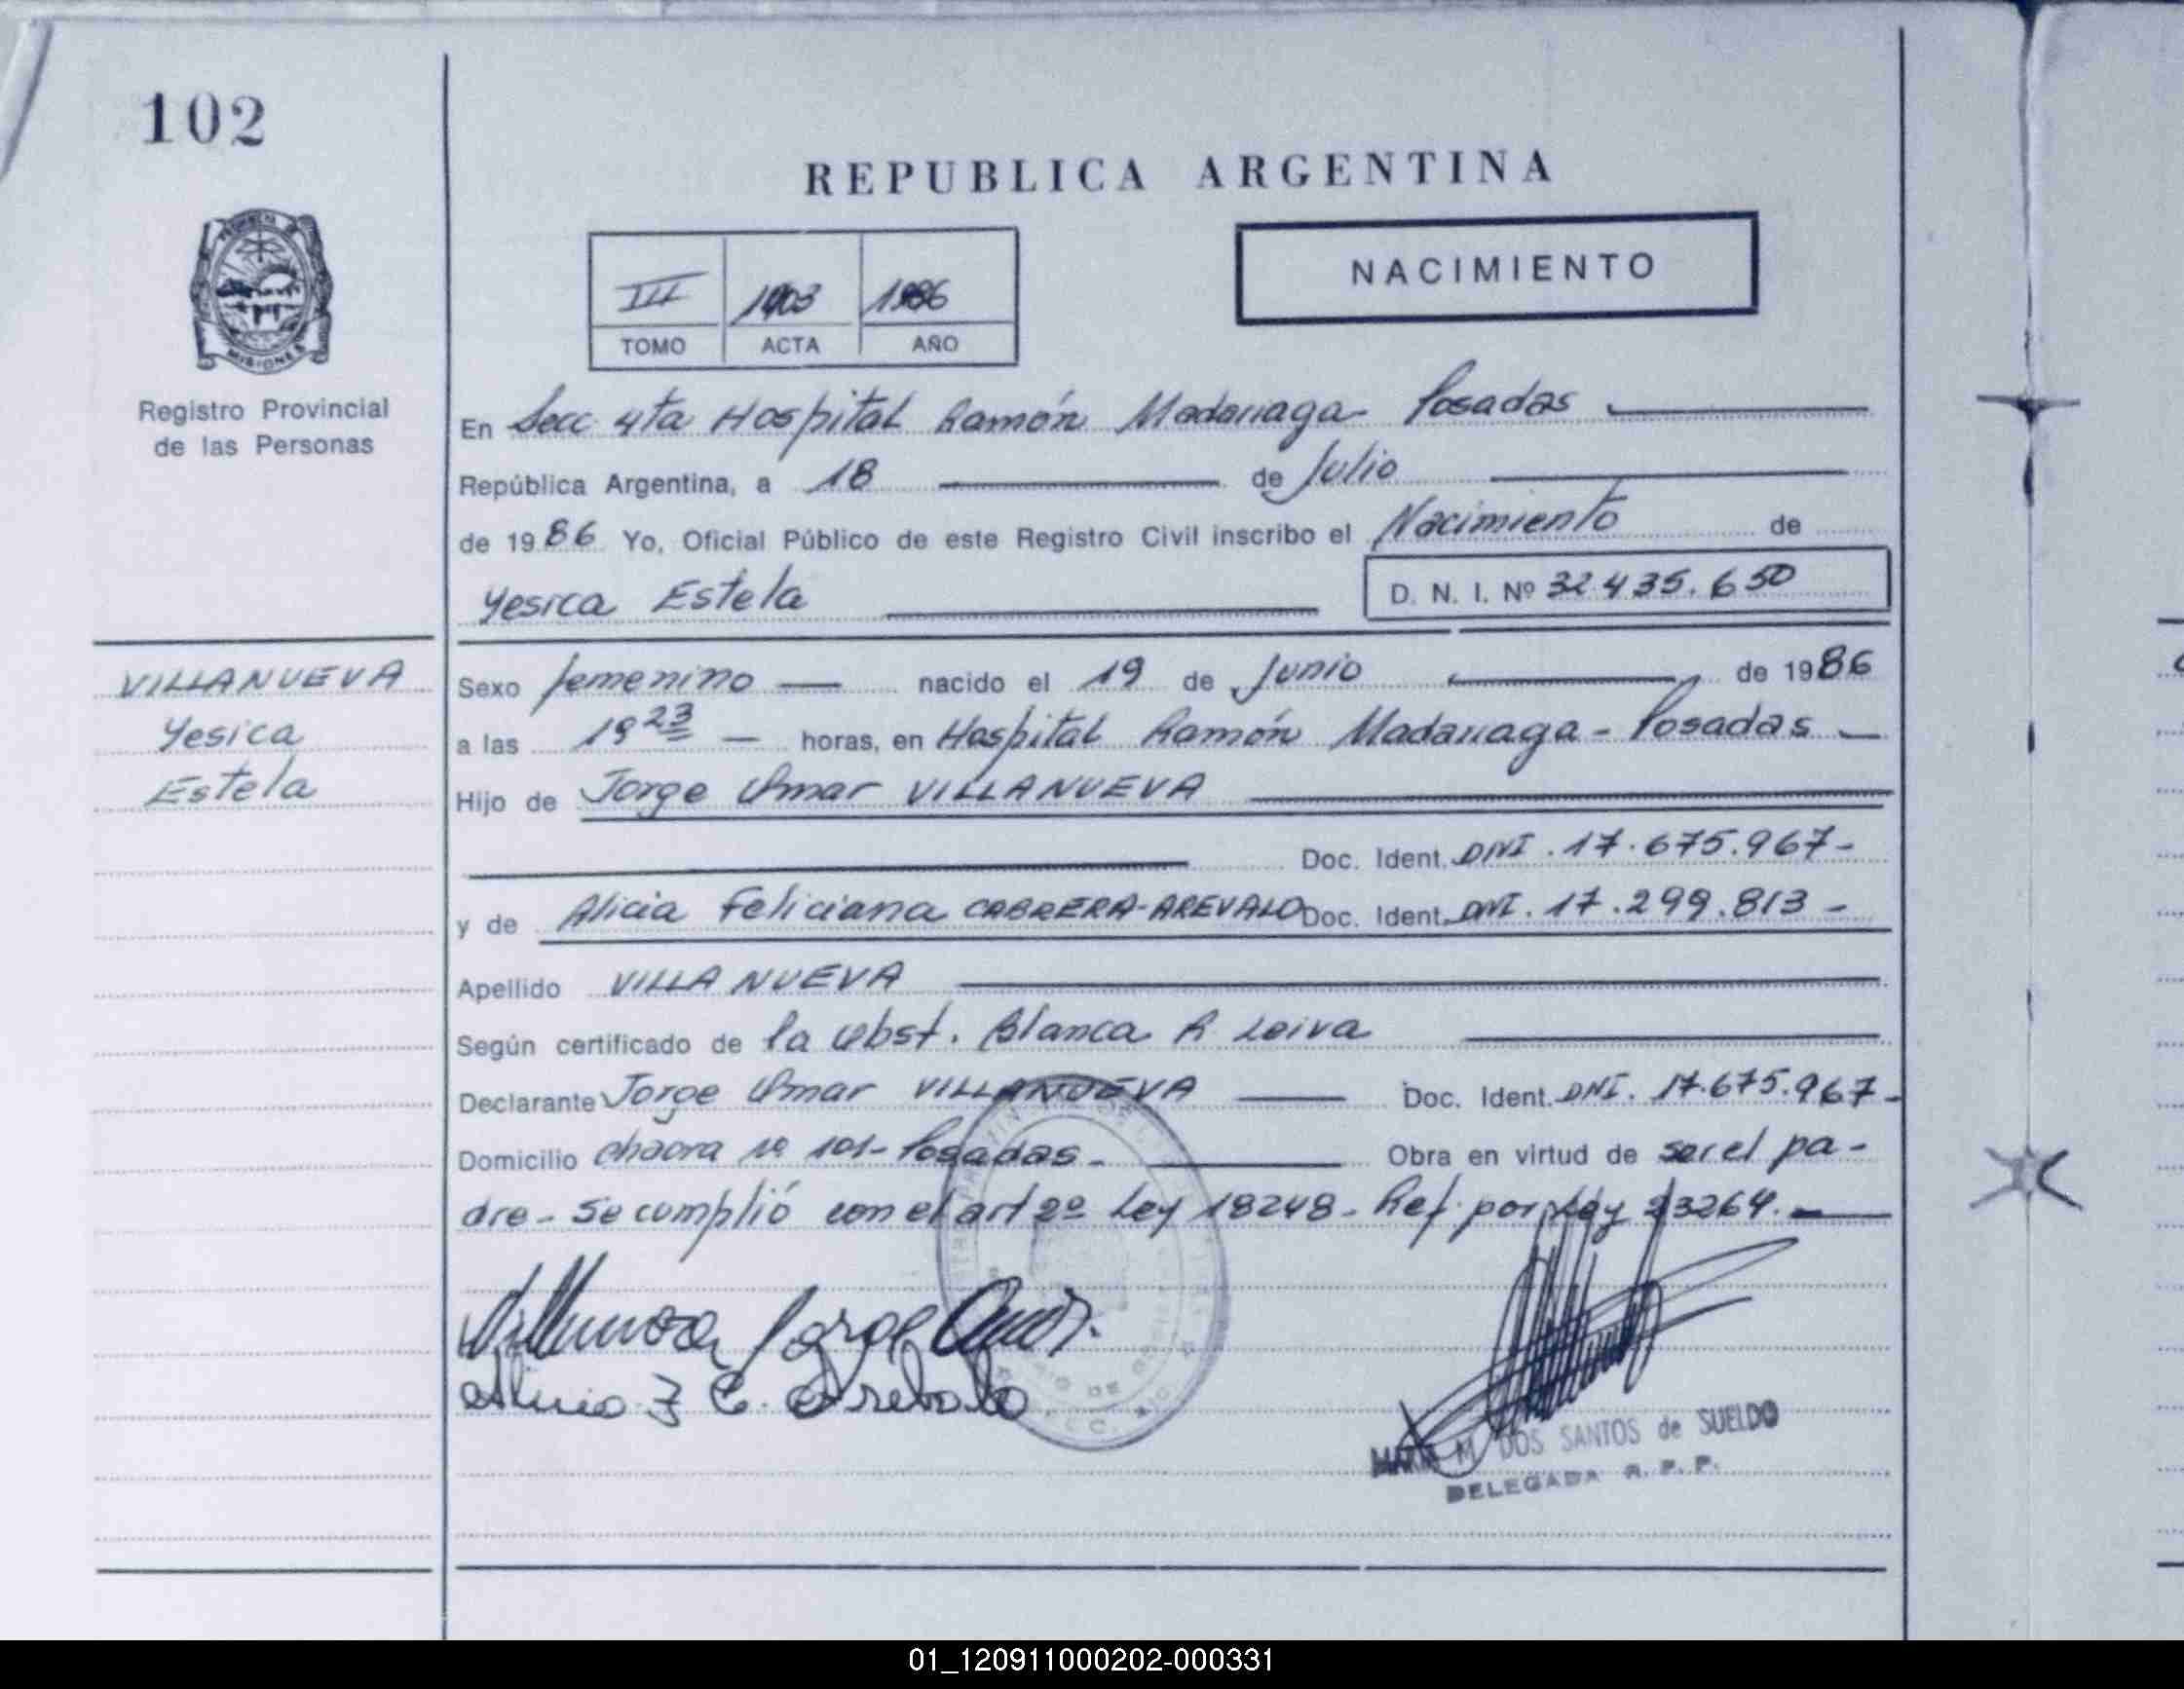 102
REPUBLICA ARGENTINA
NACIMIENTO
III 1903 1986
TOMO ACTA AÑO
PROVINCIA DE
MISIONES
Registro Provincial
de las Personas
En Secc 4ta Hospital Ramón Madariaga Posadas
República Argentina, a 18 de Julio
de 1986 Yo, Oficial Público de este Registro Civil inscribo el Nacimiento de
Yesica Estela D. N. I. Nº 32.435.650
VILLANUEVA
Yesica
Estela
Sexo femenino nacido el 19 de Junio de 1986
a las 19 23 horas, en Hospital Ramón Madariaga - Posadas
Hijo de Jorge Omar VILLANUEVA
Doc. Ident. DNI. 17.675.967-
y de Alicia Feliciana CABRERA-AREVALO Doc. Ident. DNI. 17.299.813-
Apellido VILLANUEVA
Según certificado de la Obst. Blanca R Leiva
Declarante Jorge Omar VILLANUEVA Doc. Ident. DNI. 17.675.967-
Domicilio chacra Nº 101- Posadas- Obra en virtud de ser el pa-
dre- Se cumplió con el art 2º Ley 18248- Ref. por Ley 23264.-
Villanueva Jorge Omar.
Alicia F C. Arebalo
MARIA M. DOS SANTOS de SUELDO
DELEGADA R. P. P.
01_120911000202-000331